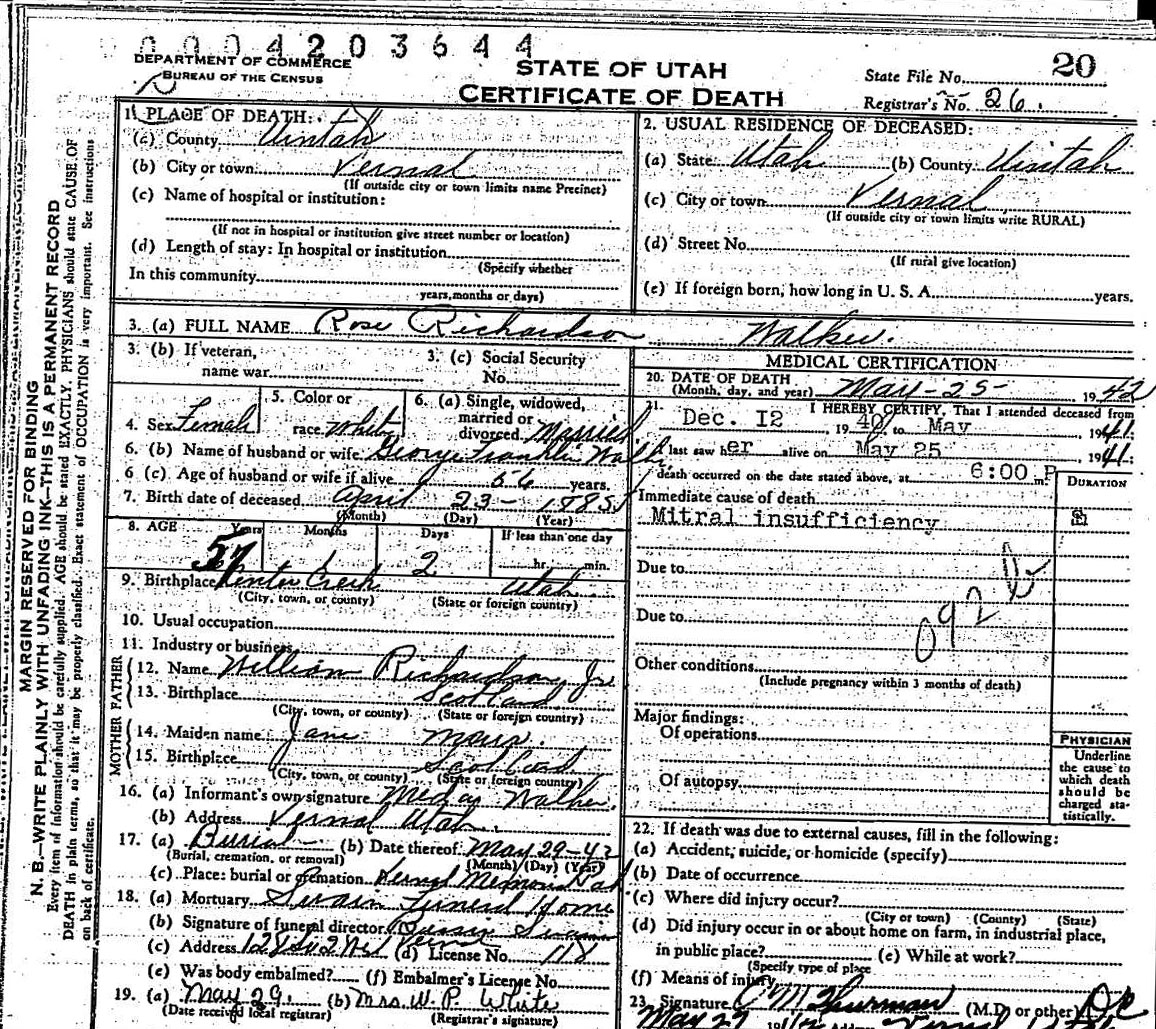 0004203644
DEPARTMENT OF COMMERCE
BUREAU OF THE CENSUS
STATE OF UTAH
CERTIFICATE OF DEATH
State File No. 20
Registrar's No. 26.
MARGIN RESERVED FOR BINDING
N. B.—WRITE PLAINLY WITH UNFADING INK—THIS IS A PERMANENT RECORD
Every item of information should be carefully supplied. AGE should be stated EXACTLY. PHYSICIANS should state CAUSE OF
DEATH in plain terms, so that it may be properly classified. Exact statement of OCCUPATION is very important. See instructions
on back of certificate.
1. PLACE OF DEATH:
(a) County Uintah
(b) City or town Vernal
(If outside city or town limits name Precinct)
(c) Name of hospital or institution:
(If not in hospital or institution give street number or location)
(d) Length of stay: In hospital or institution
(Specify whether
In this community
years, months or days)
2. USUAL RESIDENCE OF DECEASED:
(a) State Utah (b) County Uintah
(c) City or town Vernal
(If outside city or town limits write RURAL)
(d) Street No.
(If rural give location)
(e) If foreign born, how long in U. S. A. years.
3. (a) FULL NAME Rose Richardson Walker.
3. (b) If veteran, name war
3. (c) Social Security No.
4. Sex Female
5. Color or race White
6. (a) Single, widowed, married or divorced Married
6. (b) Name of husband or wife George Franklin Walk
6. (c) Age of husband or wife if alive 56 years.
7. Birth date of deceased April 23- 1885
(Month) (Day) (Year)
8. AGE Years Months Days If less than one day
57 1 2 hr. min.
9. Birthplace Creek Utah
(City, town, or county) (State or foreign country)
10. Usual occupation
11. Industry or business
FATHER
12. Name William Richardson Jr
13. Birthplace Scotland
(City, town, or county) (State or foreign country)
MOTHER
14. Maiden name Jane
15. Birthplace Scotland
(City, town, or county) (State or foreign country)
16. (a) Informant's own signature Walker
(b) Address Vernal Utah.
17. (a) Burial (b) Date thereof May 29-42
(Burial, cremation, or removal) (Month) (Day) (Year)
(c) Place: burial or cremation Vernal Memorial
18. (a) Mortuary Swain Funeral Home
(b) Signature of funeral director Swain
(c) Address Vernal (d) License No. 118
(e) Was body embalmed? (f) Embalmer's License No.
19. (a) May 29. (b) Mrs. W. P. White
(Date received local registrar) (Registrar's signature)
MEDICAL CERTIFICATION
20. DATE OF DEATH
(Month, day, and year) May-25- 1942
21. I HEREBY CERTIFY, That I attended deceased from
Dec. I2, 1940 to May 1941.
I last saw her alive on May 25 1941.
death occurred on the date stated above, at 6:00 P m.
DURATION
Immediate cause of death
Mitral insufficiency
Due to
Due to
092 b
Other conditions
(Include pregnancy within 3 months of death)
Major findings:
Of operations
Of autopsy
PHYSICIAN
Underline
the cause to
which death
should be
charged sta-
tistically.
22. If death was due to external causes, fill in the following:
(a) Accident, suicide, or homicide (specify)
(b) Date of occurrence
(c) Where did injury occur?
(City or town) (County) (State)
(d) Did injury occur in or about home on farm, in industrial place,
in public place? (e) While at work?
(Specify type of place
(f) Means of injury
23. Signature (M.D. or other)
May 27 Vernal